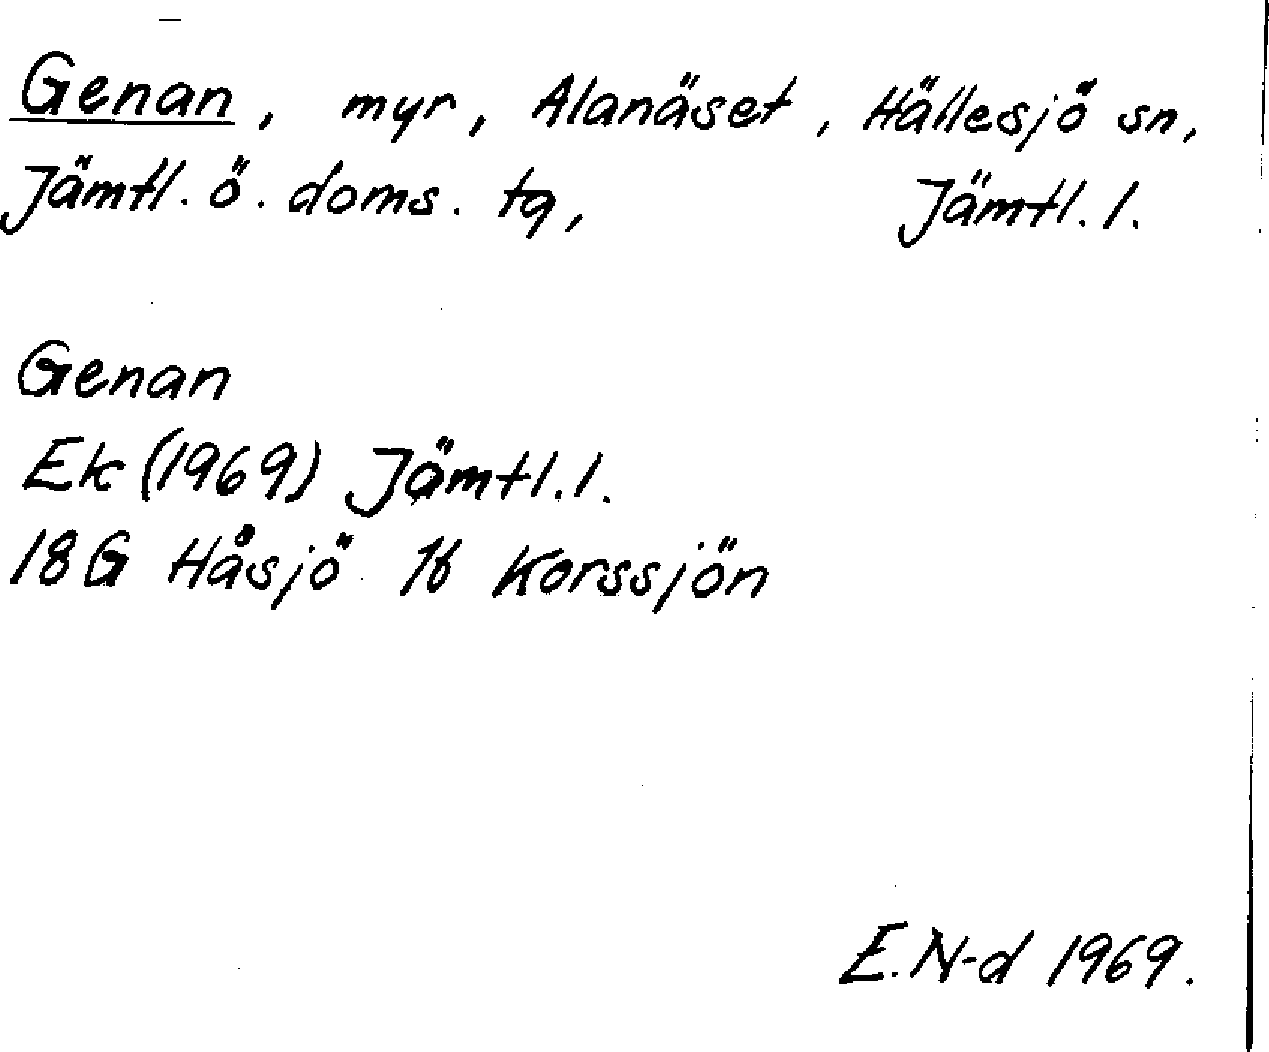 Genan, myr, Alanäset, Hällesjö sn,
Jämtl. ö. doms. tg, Jämtl. l.
Genan
Ek (1969) Jämtl. l.
18G Håsjö 1b Korssjön
E. N-d 1969.